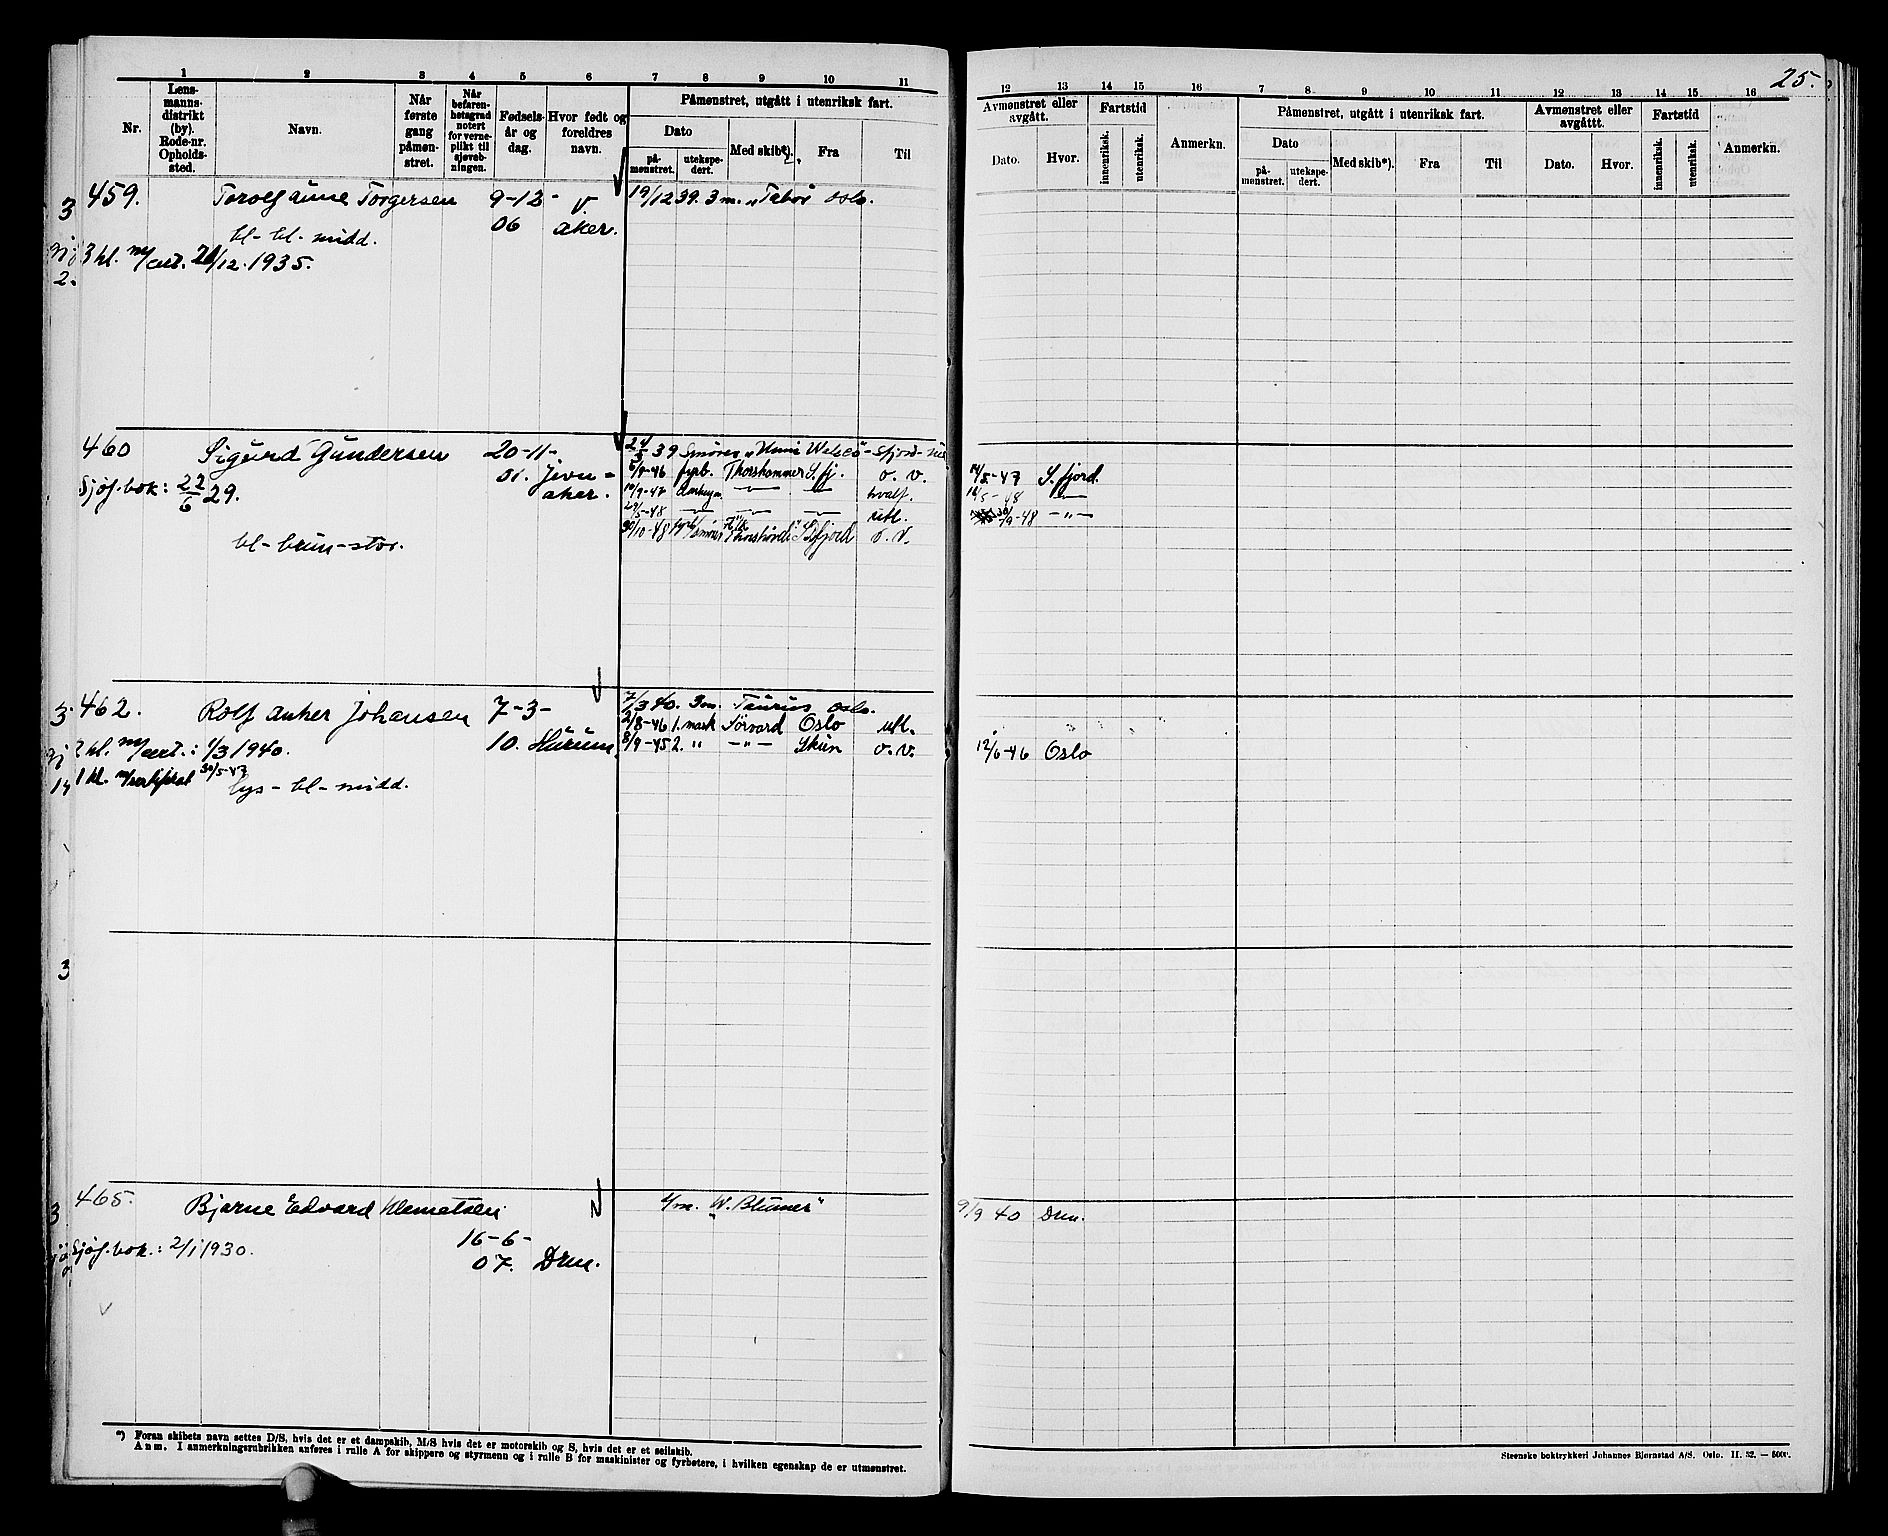 1 2 3 4 5 6 7 8 9 10 11
Nr.
Lens-
manns-
distrikt
(by).
Rode-nr.
Opholds-
sted.
Navn.
Når
første
gang
påmøn-
stret.
Når
befaren-
hetsgrad
notert
for verne-
plikt til
sjøveb-
ningen.
Fødsels-
år og
dag.
Hvor født og
foreldres
navn.
Påmønstret, utgått i utenriksk fart.
Dato
på-
mønstret.
utekspe-
dert.
Med skib*).
Fra
Til
459. Torolf Aune Torgersen 9-12- V. 19/12 39. 3 m. "Tabor Oslo.
bl- bl- midd. 06 Aker.
3 kl. m/cert. 21/12. 1935.
460 Sigurd Gundersen 20-11- 39 Smører
Sjøf.bok: 22/6 29. 01. Jevn-
aker.
bl-brun-stor.
6/9-46 fyrb. Thorshammer S.fj. o. v.
19/9-47 hvalf.
29/5-48 utl.
30/10-48 Thorshövdi S.fjord o. v.
462. Rolf Anker Johansen 7-3- 7/3 40. 3m. Taurus Oslo.
10. Hurum 2/8-46 1. mask Sörvard Oslo utl.
2 kl. m/cert.: 1/3 1940. 8/9-45 2. " -"- Skien o. v.
1 kl. m/sertifikat 30/5-47
lys- bl- midd.
465. Bjarne Edvard Klemetsen 4/m. "W. Blumer"
16-6-
Sjøf.bok.: 2/1 1930. 07. Drm.
*) Foran skibets navn settes D/S, hvis det er et dampskib, M/S hvis det er motorskib og S, hvis det er et seilskib.
Anm. I anmerkningsrubrikken anføres i rulle A for skippere og styrmenn og i rulle B for maskinister og fyrbøtere, i hvilken egenskap de er utmønstret.
25.
12 13 14 15 16 7 8 9 10 11 12 13 14 15 16
Avmønstret eller
avgått.
Dato. Hvor.
Fartstid
innenriksk. utenriksk.
Anmerkn.
Påmønstret, utgått i utenriksk fart.
Dato
på-
mønstret.
utekspe-
dert.
Med skib*).
Fra
Til
Avmønstret eller
avgåttt.
Dato. Hvor.
Fartstid
innenriksk. utenriksk.
Anmerkn.
14/5-47 S.fjord.
18/5-48 -"-
/9-48 -"-
12/6-46 Oslo
9/9 40 Drm.
Steenske boktrykkeri Johannes Bjørnstad A/S. Oslo. II. 32. — 5000.